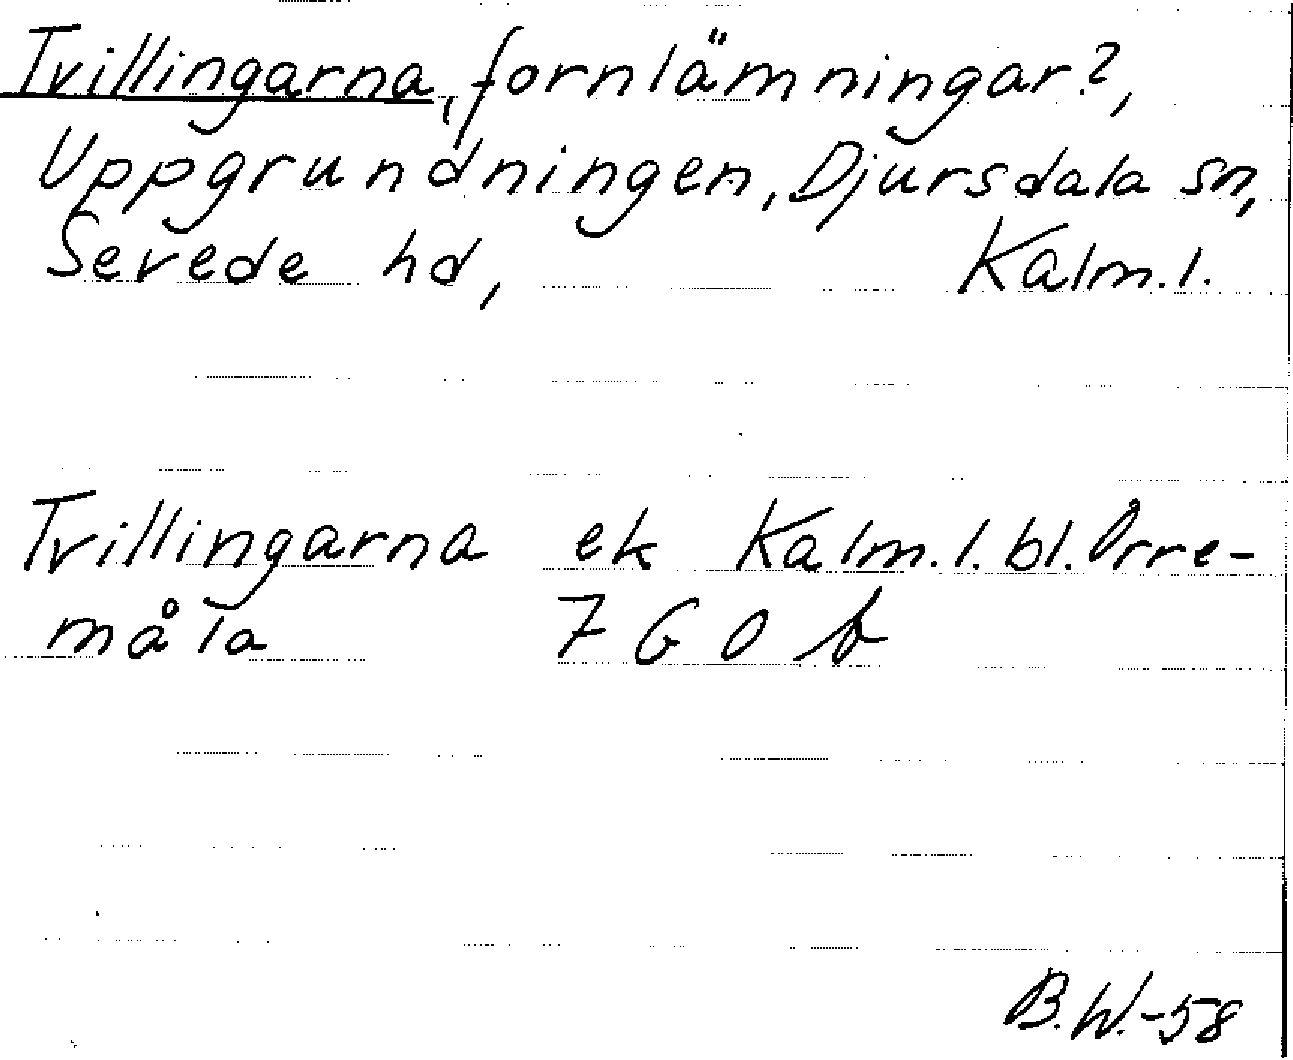 Tvillingarna, fornlämningar?,
Uppgrundningen, Djursdala sn,
Sevede hd, Kalm.l.
Tvillingarna ek Kalm.l. bl. Orre-
måla 7 G O b
B.W.-58